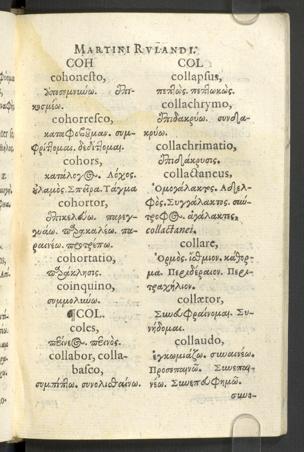 MARTINI RVLANDI.
COH
cohonesto,
ὑποσεμνύω. ἐπι-
κοσμέω.
cohorresco,
καταφοβοῦμαι. συμ-
φρίττομαι. δεδίττομαι.
cohors,
κατάλογος. Λόχος.
ἰλαμὸς. Σπεῖρα. Τάγμα
cohortor,
ἐπικελεύω. παρεγ-
γυάω. παρακαλέω. πα-
ραινέω. προτρέπω.
cohortatio,
παράκλησις.
coinquino,
συμμολύνω.
¶COL.
coles,
collabor, colla-
basco,
συμπίπτω. συνολισθαίνω.
COL
collapsus,
πεπτὼς. πεπτωκὼς.
collachrymo,
ἐπιδακρύω. συνδα-
κρύω.
collachrimatio,
ἐπιδάκρυσις.
collactaneus,
Ὁμογάλακτος. Ἀδελ-
φὸς. Συγγάλακτος. σύν-
τροφος. ἀγάλακτος.
collactanei.
collare,
Ὅρμος. ἴσθμιον. κάθορ-
μα. Περιδέραιον. Περι-
τραχήλιον.
collætor,
Συνευφραίνομαι. Συ-
νήδομαι.
collaudo,
ἐγκωμιάζω. συναινέω.
Προσεπαινῶ. Συνεπαι-
νέω. Συνεπευφημῶ.
συνε-